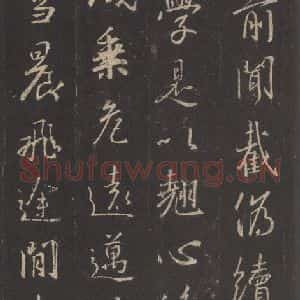 前聞截僞續
學是以翹心
乘危遠邁
雪晨飛途間
Shufawang.CN